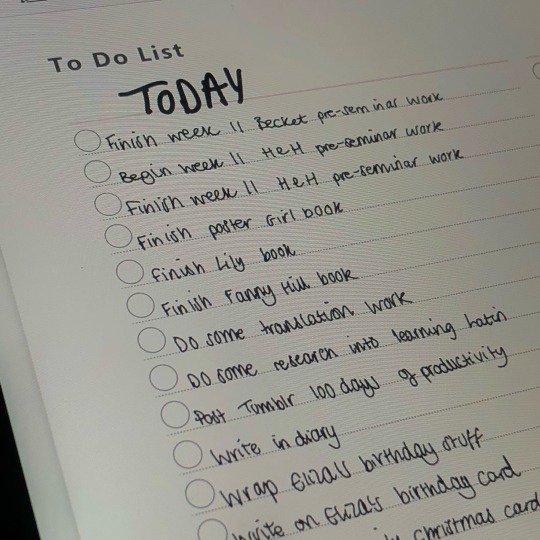 To Do List
TODAY
Finish week 11 Becket pre-seminar work
Begin week 11 H&H pre-seminar work
Finish week 11 H&H pre-seminar work
Finish poster Girl book
Finish Lily book
Finish Fanny Hill book
Do some translation work
Do some research into learning Latin
Post Tumblr 100 days of productivity
Write in diary
Wrap Eliza's birthday stuff
Write on Eliza's birthday card
christmas card